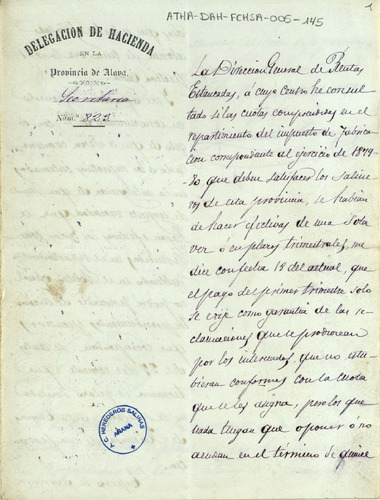 ATHA-DAH-FCHSA-005-145
1
DELEGACION DE HACIENDA
EN LA
Provincia de Alava.
Secretaria
Núm.° 822
La Direccion General de Rentas
Estancadas, a cuyo Centro he consul
tado si las cuotas comprendidas en el
repartimiento del impuesto de fabrica
cion correspondiente al ejercicio de 1879-
80 que deben satisfacer los Saline
ros de esta provincia, se habian
de hacer efectivas de una sola
vez ó en plazos trimestrales, me
dice con fecha 18 del actual, que
el pago del primer trimestre solo
se exije como garantia de las re
clamaciones que se produzcan
por los interesados, que no estu
bieran conformes con la cuota
que se les asigna, pero los que
nada tengan que oponer ó no
acudan en el término de quince
F.C. HEREDEROS SALINAS
AÑANA